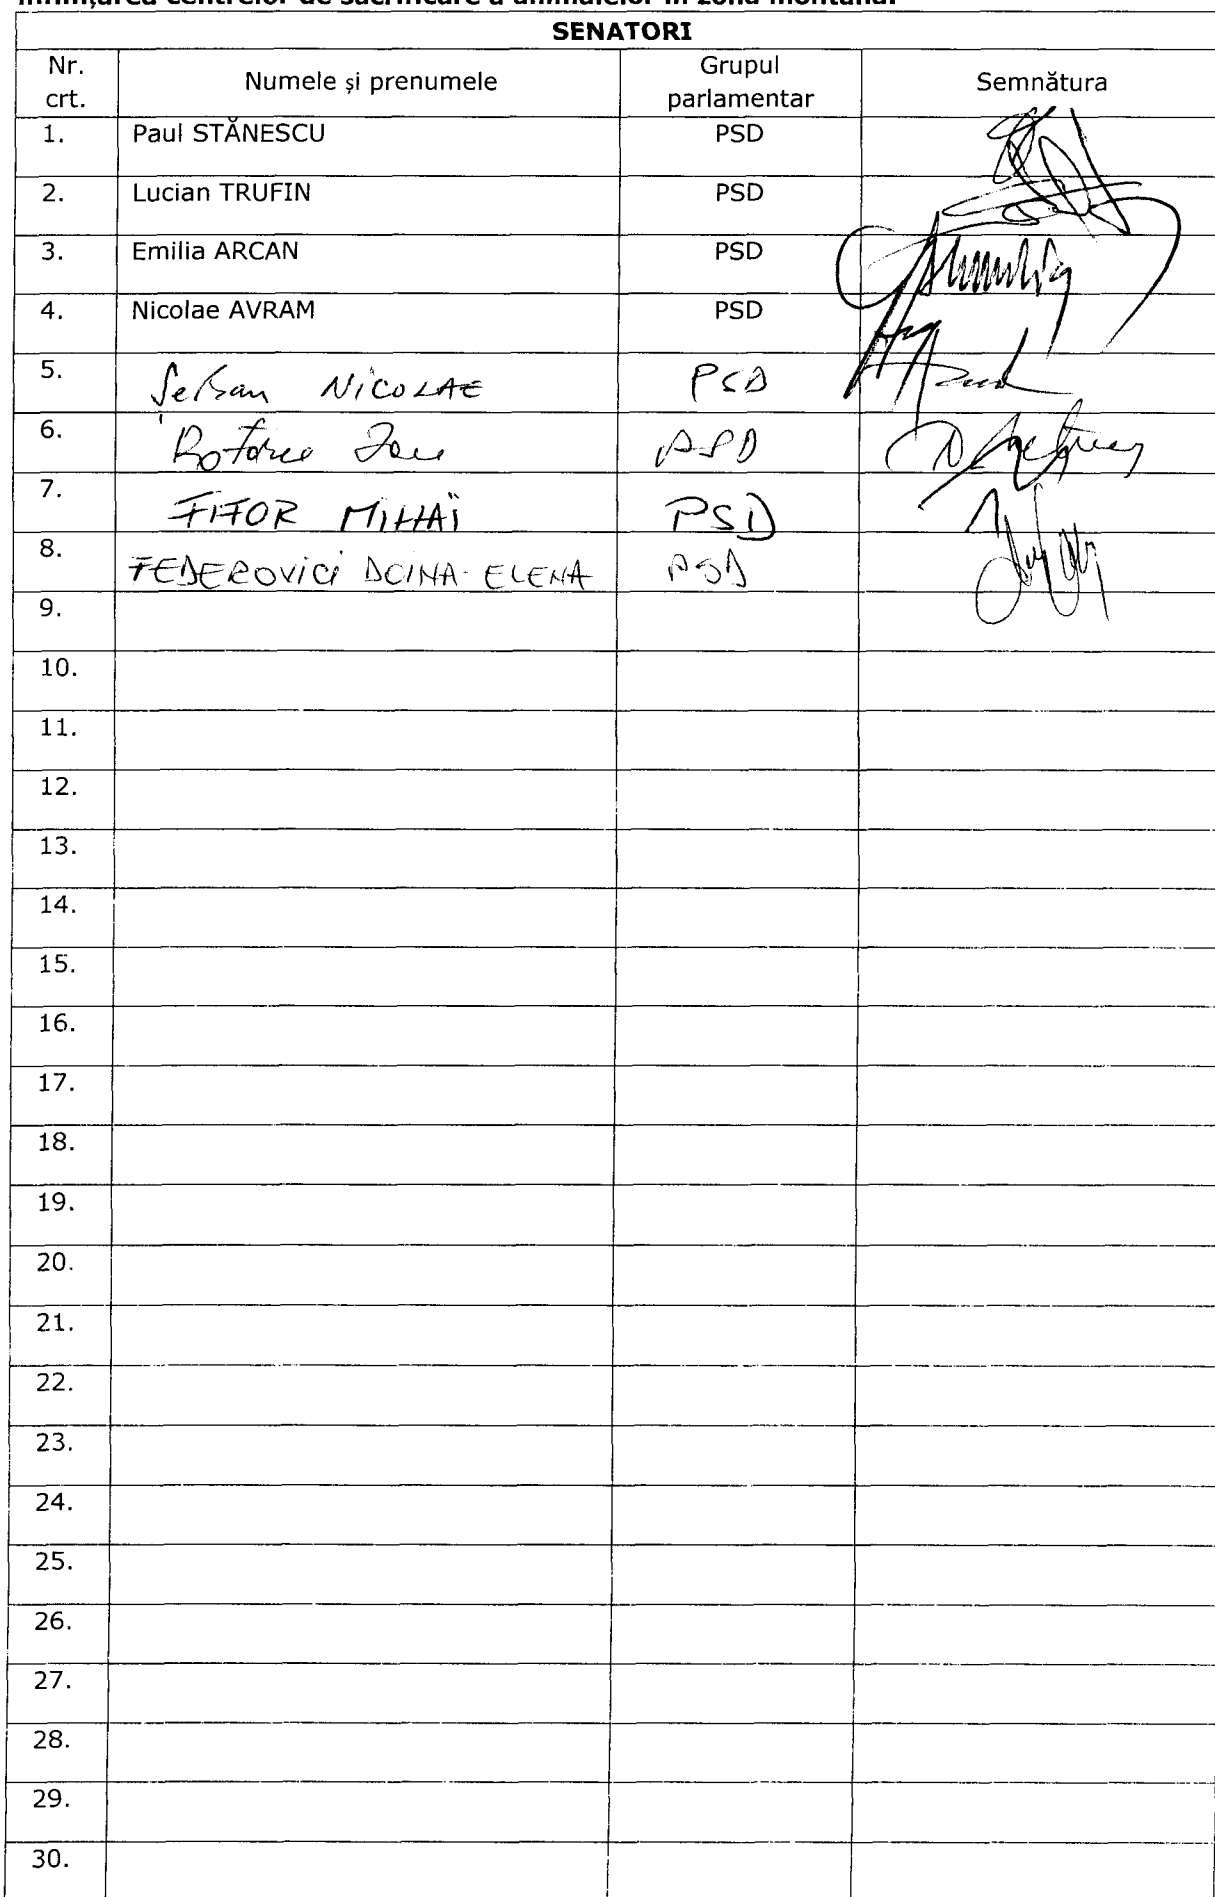 înființarea centrelor de sacrificare a animalelor în zona montană.
SENATORI
Nr. crt. Numele și prenumele Grupul parlamentar Semnătura
1. Paul STĂNESCU PSD
2. Lucian TRUFIN PSD
3. Emilia ARCAN PSD
4. Nicolae AVRAM PSD
5. Șerban NICOLAE PSD
6. Rotaru Ion PSD
7. FIFOR MIHAI PSD
8. FEDEROVICI DOINA-ELENA PSD
9.
10.
11.
12.
13.
14.
15.
16.
17.
18.
19.
20.
21.
22.
23.
24.
25.
26.
27.
28.
29.
30.